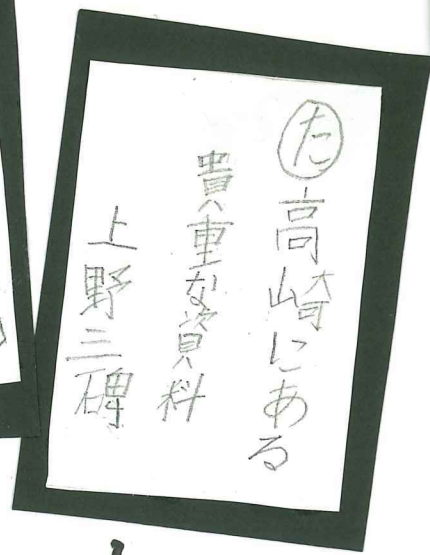 た高崎にある
貴重な資料
上野三碑